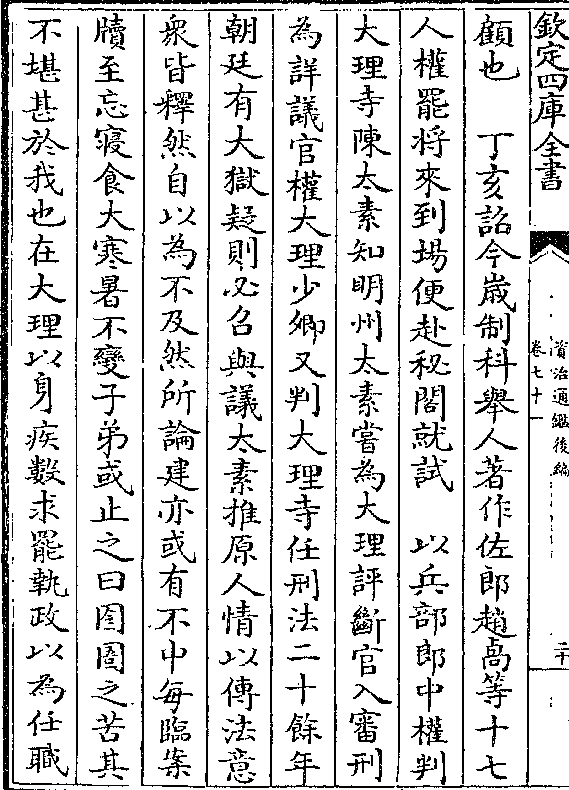 欽定四庫全書
資治通鑑後編
卷七十一
二十
顧也　丁亥詔今嵗制科舉人著作佐郎趙卨等十七
人權罷將來到場便赴秘閣就試　以兵部郎中權判
大理寺陳太素知明州太素嘗為大理評斷官入審刑
為詳議官權大理少卿又判大理寺任刑法二十餘年
朝廷有大獄疑則必召與議太素推原人情以傳法意
衆皆釋然自以為不及然所論建亦或有不中每臨案
牘至忘寢食大寒暑不變子弟或止之曰囹圄之苦其
不堪甚於我也在大理以身疾數求罷執政以為任職